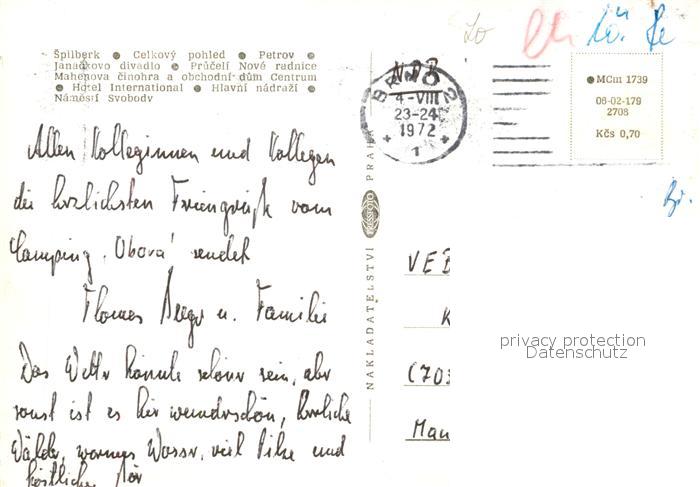 Špilberk ● Celkový pohled ● Petrov ●
Janáčkovo divadlo ● Průčelí Nové radnice
Mahenova činohra a obchodní dům Centrum
● Hotel International ● Hlavní nádraží ●
Náměstí Svobody
BRNO 2
4-VIII
23-24
1972
1
●MCm 1739
08-02-179
2708
Kčs 0,70
Allen Kolleginnen und Kollegen
die herzlichsten Feriengrüße vom
Camping „Obora" sendet
u. Familie
Das Wetter könnte schöner sein, aber
sonst ist es hier wunderschön, herrliche
Wälder, warmes Wasser, viel Pilze und
köstliches Bier
NAKLADATELSTVÍ PRESSFOTO PRAHA
VEB
K
(703
Mau
privacy protection
Datenschutz